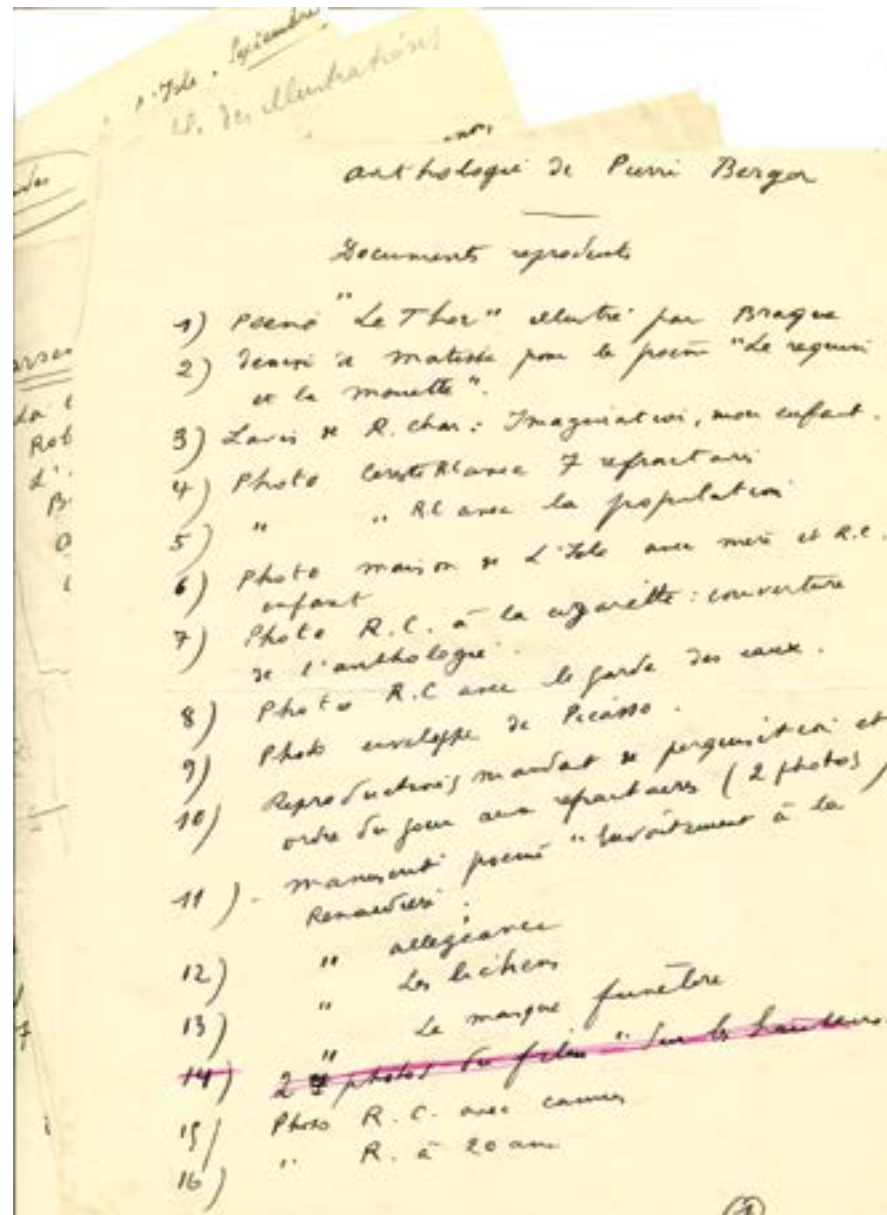 Isle. Septembre
des illustrations
anthologie de Pierre Berger
Documents reproduits
1) Poème "Le Thor" illustré par Braque
2) dessin de Matisse pour le poème "Le requin
et la mouette".
3) Lavis de R. Char : Imagination, mon enfant.
4) Photo Céreste RC avec 7 refractaires
5) " " RC avec la population
6) Photo maison de L'Isle avec mère et R.C.
enfant
7) Photo R.C. à la cigarette : couverture
de l'anthologie.
8) Photo R.C avec le garde des eaux.
9) Photo enveloppe de Picasso.
10) Reproductions mandat de perquisition et
ordre du jour aux refractaires (2 photos)
11) - manuscrit poème " à la
Renardière :
12) " allégeance
" Les lichens
13) " Le masque funèbre
14) 2 photos du film "Sur les hauteurs.
15) Photo R.C. avec cannes
16) " R. à 20 ans
1